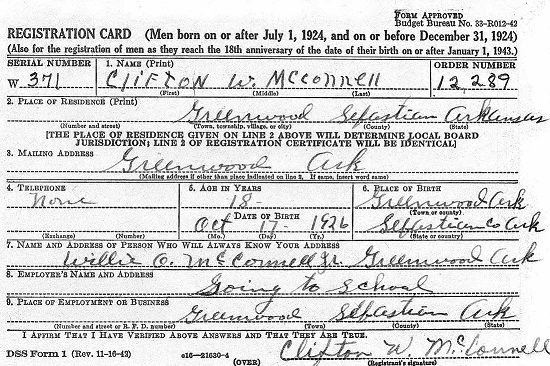 Form Approved
Budget Bureau No. 33-R012-42
REGISTRATION CARD (Men born on or after July 1, 1924, and on or before December 31, 1924)
(Also for the registration of men as they reach the 18th anniversary of the date of their birth on or after January 1, 1943.)
SERIAL NUMBER 1. NAME (Print) ORDER NUMBER
W 371 Clifton W. McConnell 12,289
(First) (Middle) (Last)
2. PLACE OF RESIDENCE (Print)
Greenwood Sebastian Arkansas
(Number and street) (Town, township, village, or city) (County) (State)
[THE PLACE OF RESIDENCE GIVEN ON LINE 2 ABOVE WILL DETERMINE LOCAL BOARD
JURISDICTION; LINE 2 OF REGISTRATION CERTIFICATE WILL BE IDENTICAL]
3. MAILING ADDRESS
Greenwood Ark
(Mailing address if other than place indicated on line 2. If same, insert word same)
4. TELEPHONE 5. AGE IN YEARS 6. PLACE OF BIRTH
None 18- Greenwood Ark
DATE OF BIRTH (Town or county)
Oct 17- 1926 Sebastian Co Ark
(Exchange) (Number) (Mo.) (Day) (Yr.) (State or country)
7. NAME AND ADDRESS OF PERSON WHO WILL ALWAYS KNOW YOUR ADDRESS
Willie O. McConnell Jr. Greenwood Ark
8. EMPLOYER'S NAME AND ADDRESS
Going to School
9. PLACE OF EMPLOYMENT OR BUSINESS
Greenwood Sebastian Ark
(Number and street or R. F. D. number) (Town) (County) (State)
I AFFIRM THAT I HAVE VERIFIED ABOVE ANSWERS AND THAT THEY ARE TRUE.
DSS Form 1 (Rev. 11-16-42) c16—21630-4 Clifton W. McConnell
(OVER) (Registrant's signature)